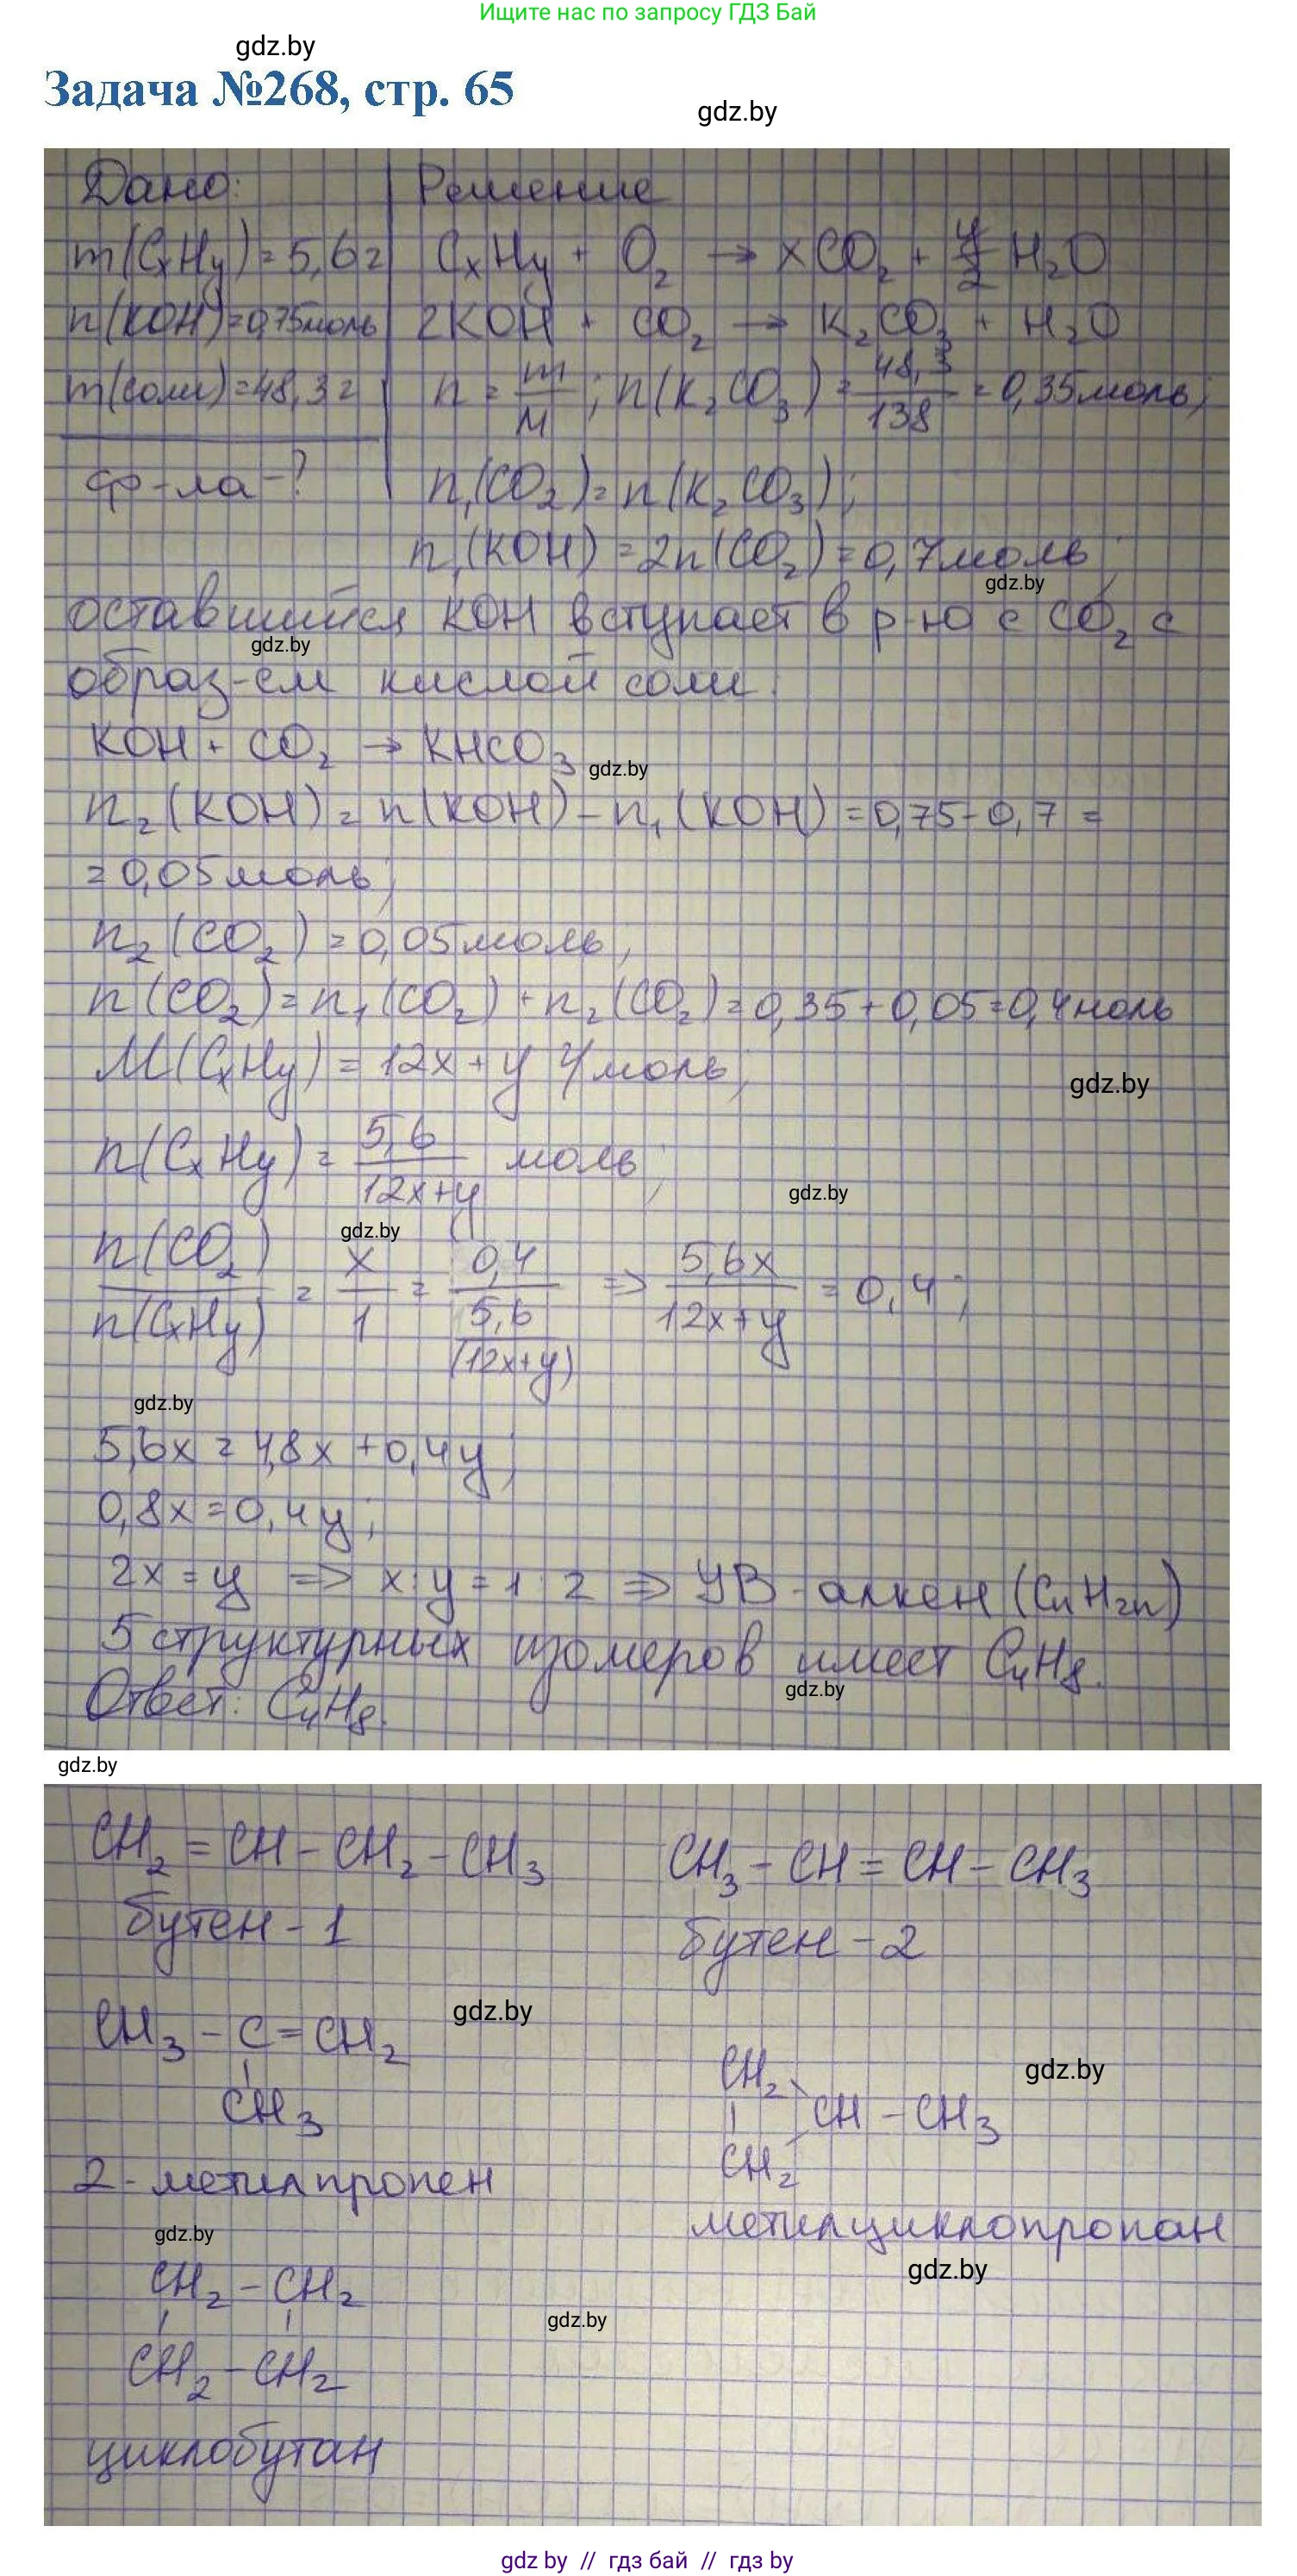 Ищите нас по запросу ГДЗ Бай
gdz.by
Задача №268, стр. 65
gdz.by
Дано:
Решение
m(CxHy)=5,6г
CxHy + O₂ → xCO₂ + y/2 H₂O
n(KOH)=0,75моль
2KOH + CO₂ → K₂CO₃ + H₂O
m(соли)=48,3г
n = m/M; n(K₂CO₃) = 48,3/138 = 0,35моль;
ф-ла-?
n₁(CO₂)=n(K₂CO₃);
n₁(KOH)=2n(CO₂)=0,7моль;
gdz.by
оставшийся KOH вступает в р-ю с CO₂ с
gdz.by
образ-ем кислой соли:
KOH + CO₂ → KHCO₃
gdz.by
n₂(KOH)=n(KOH)-n₁(KOH)=0,75-0,7=
=0,05моль;
n₂(CO₂)=0,05моль;
n(CO₂)=n₁(CO₂)+n₂(CO₂)=0,35+0,05=0,4моль
M(CxHy)=12x+y г/моль;
gdz.by
n(CxHy)= 5,6/12x+y моль;
gdz.by
gdz.by
n(CO₂)/n(CxHy) = x/1 = 0,4/5,6/(12x+y) => 5,6x/12x+y = 0,4;
gdz.by
5,6x=4,8x+0,4y;
0,8x=0,4y;
2x=y => x:y=1:2 => УВ-алкен (CnH2n)
5 структурных изомеров имеет C₄H₈.
gdz.by
Ответ: C₄H₈.
gdz.by
CH₂=CH-CH₂-CH₃
CH₃-CH=CH-CH₃
бутен-1
бутен-2
gdz.by
CH₃-C=CH₂
CH₃
CH₂
gdz.by
CH-CH₃
CH₂
2-метилпропен
метилциклопропан
gdz.by
gdz.by
CH₂-CH₂
gdz.by
CH₂-CH₂
циклобутан
gdz by // гдз бай // гдз by